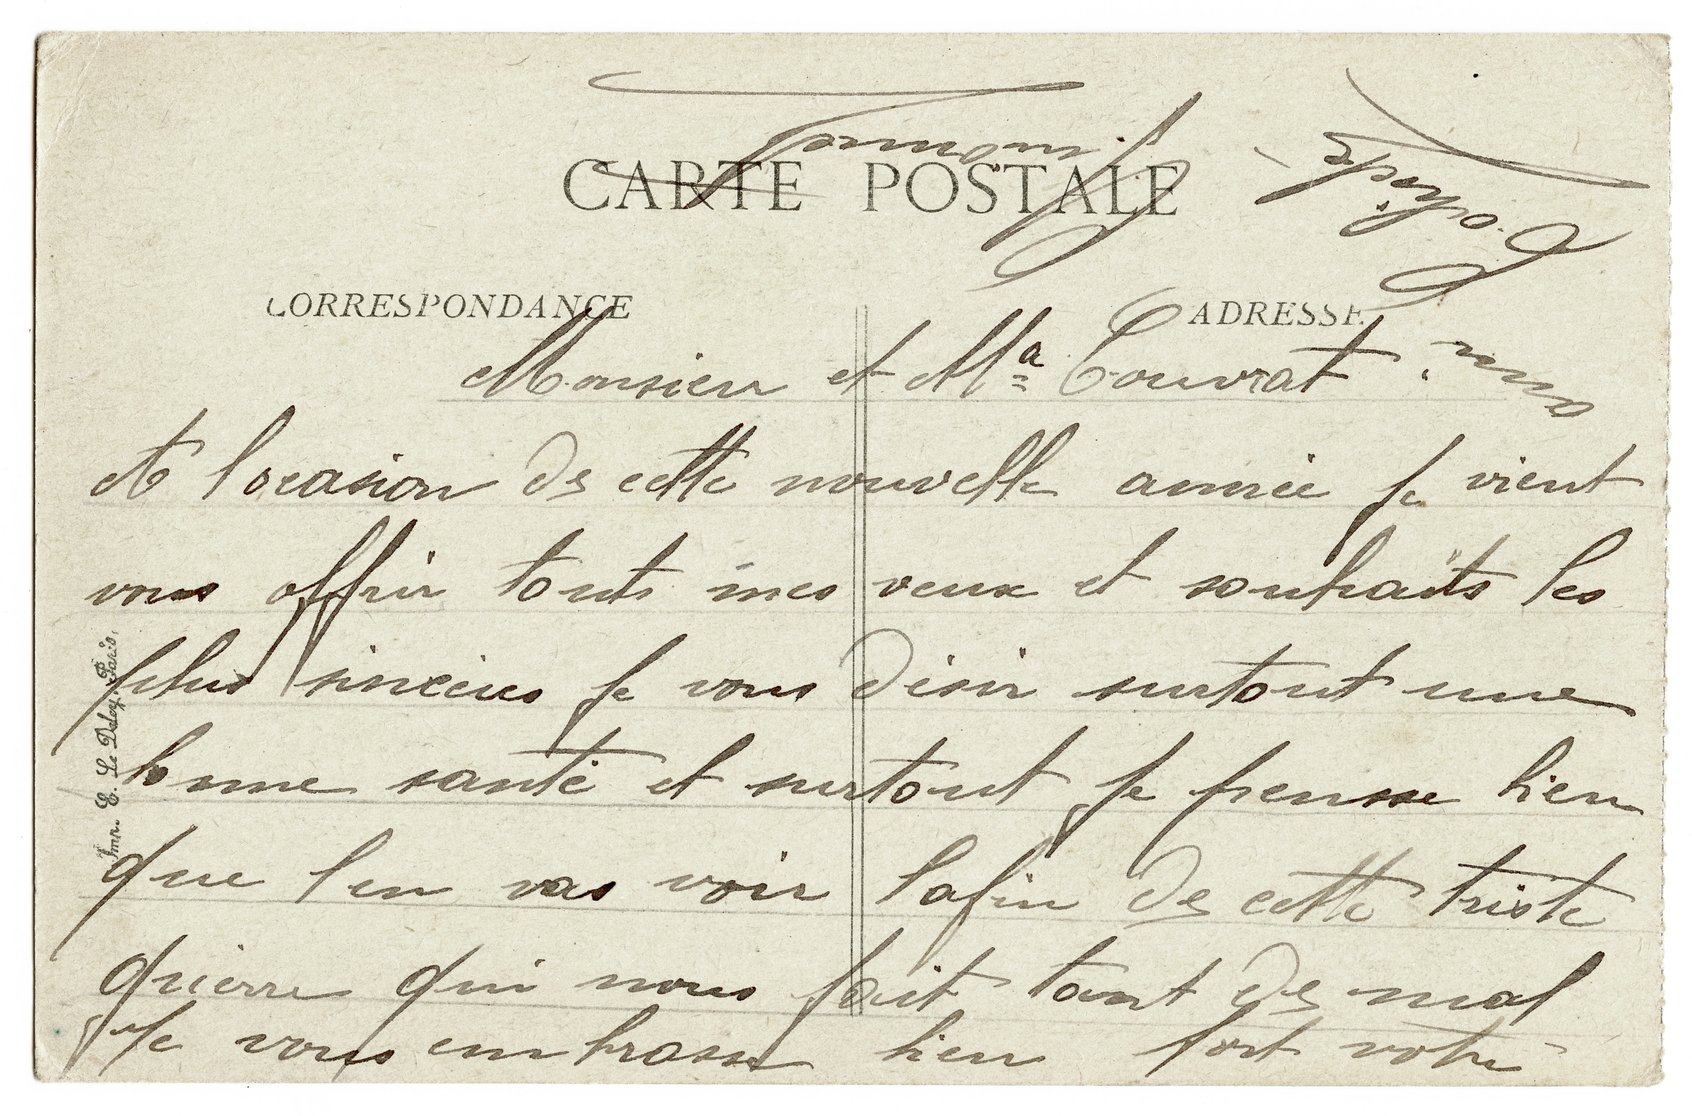 CARTE POSTALE
CORRESPONDANCE
ADRESSE
Monsieur et Ma Couvrat
a l'ocasion de cette nouvelle année je vient
vous offrir touts mes veux et souhaits les
plus sincères je vous désir surtout une
bonne santé et surtout je pensse bien
que l'en vas voir la fin de cette triste
guierre qui nous fait tant de mal
Je vous embrasse bien fort votre
Imp. E. Le Deley, Paris.